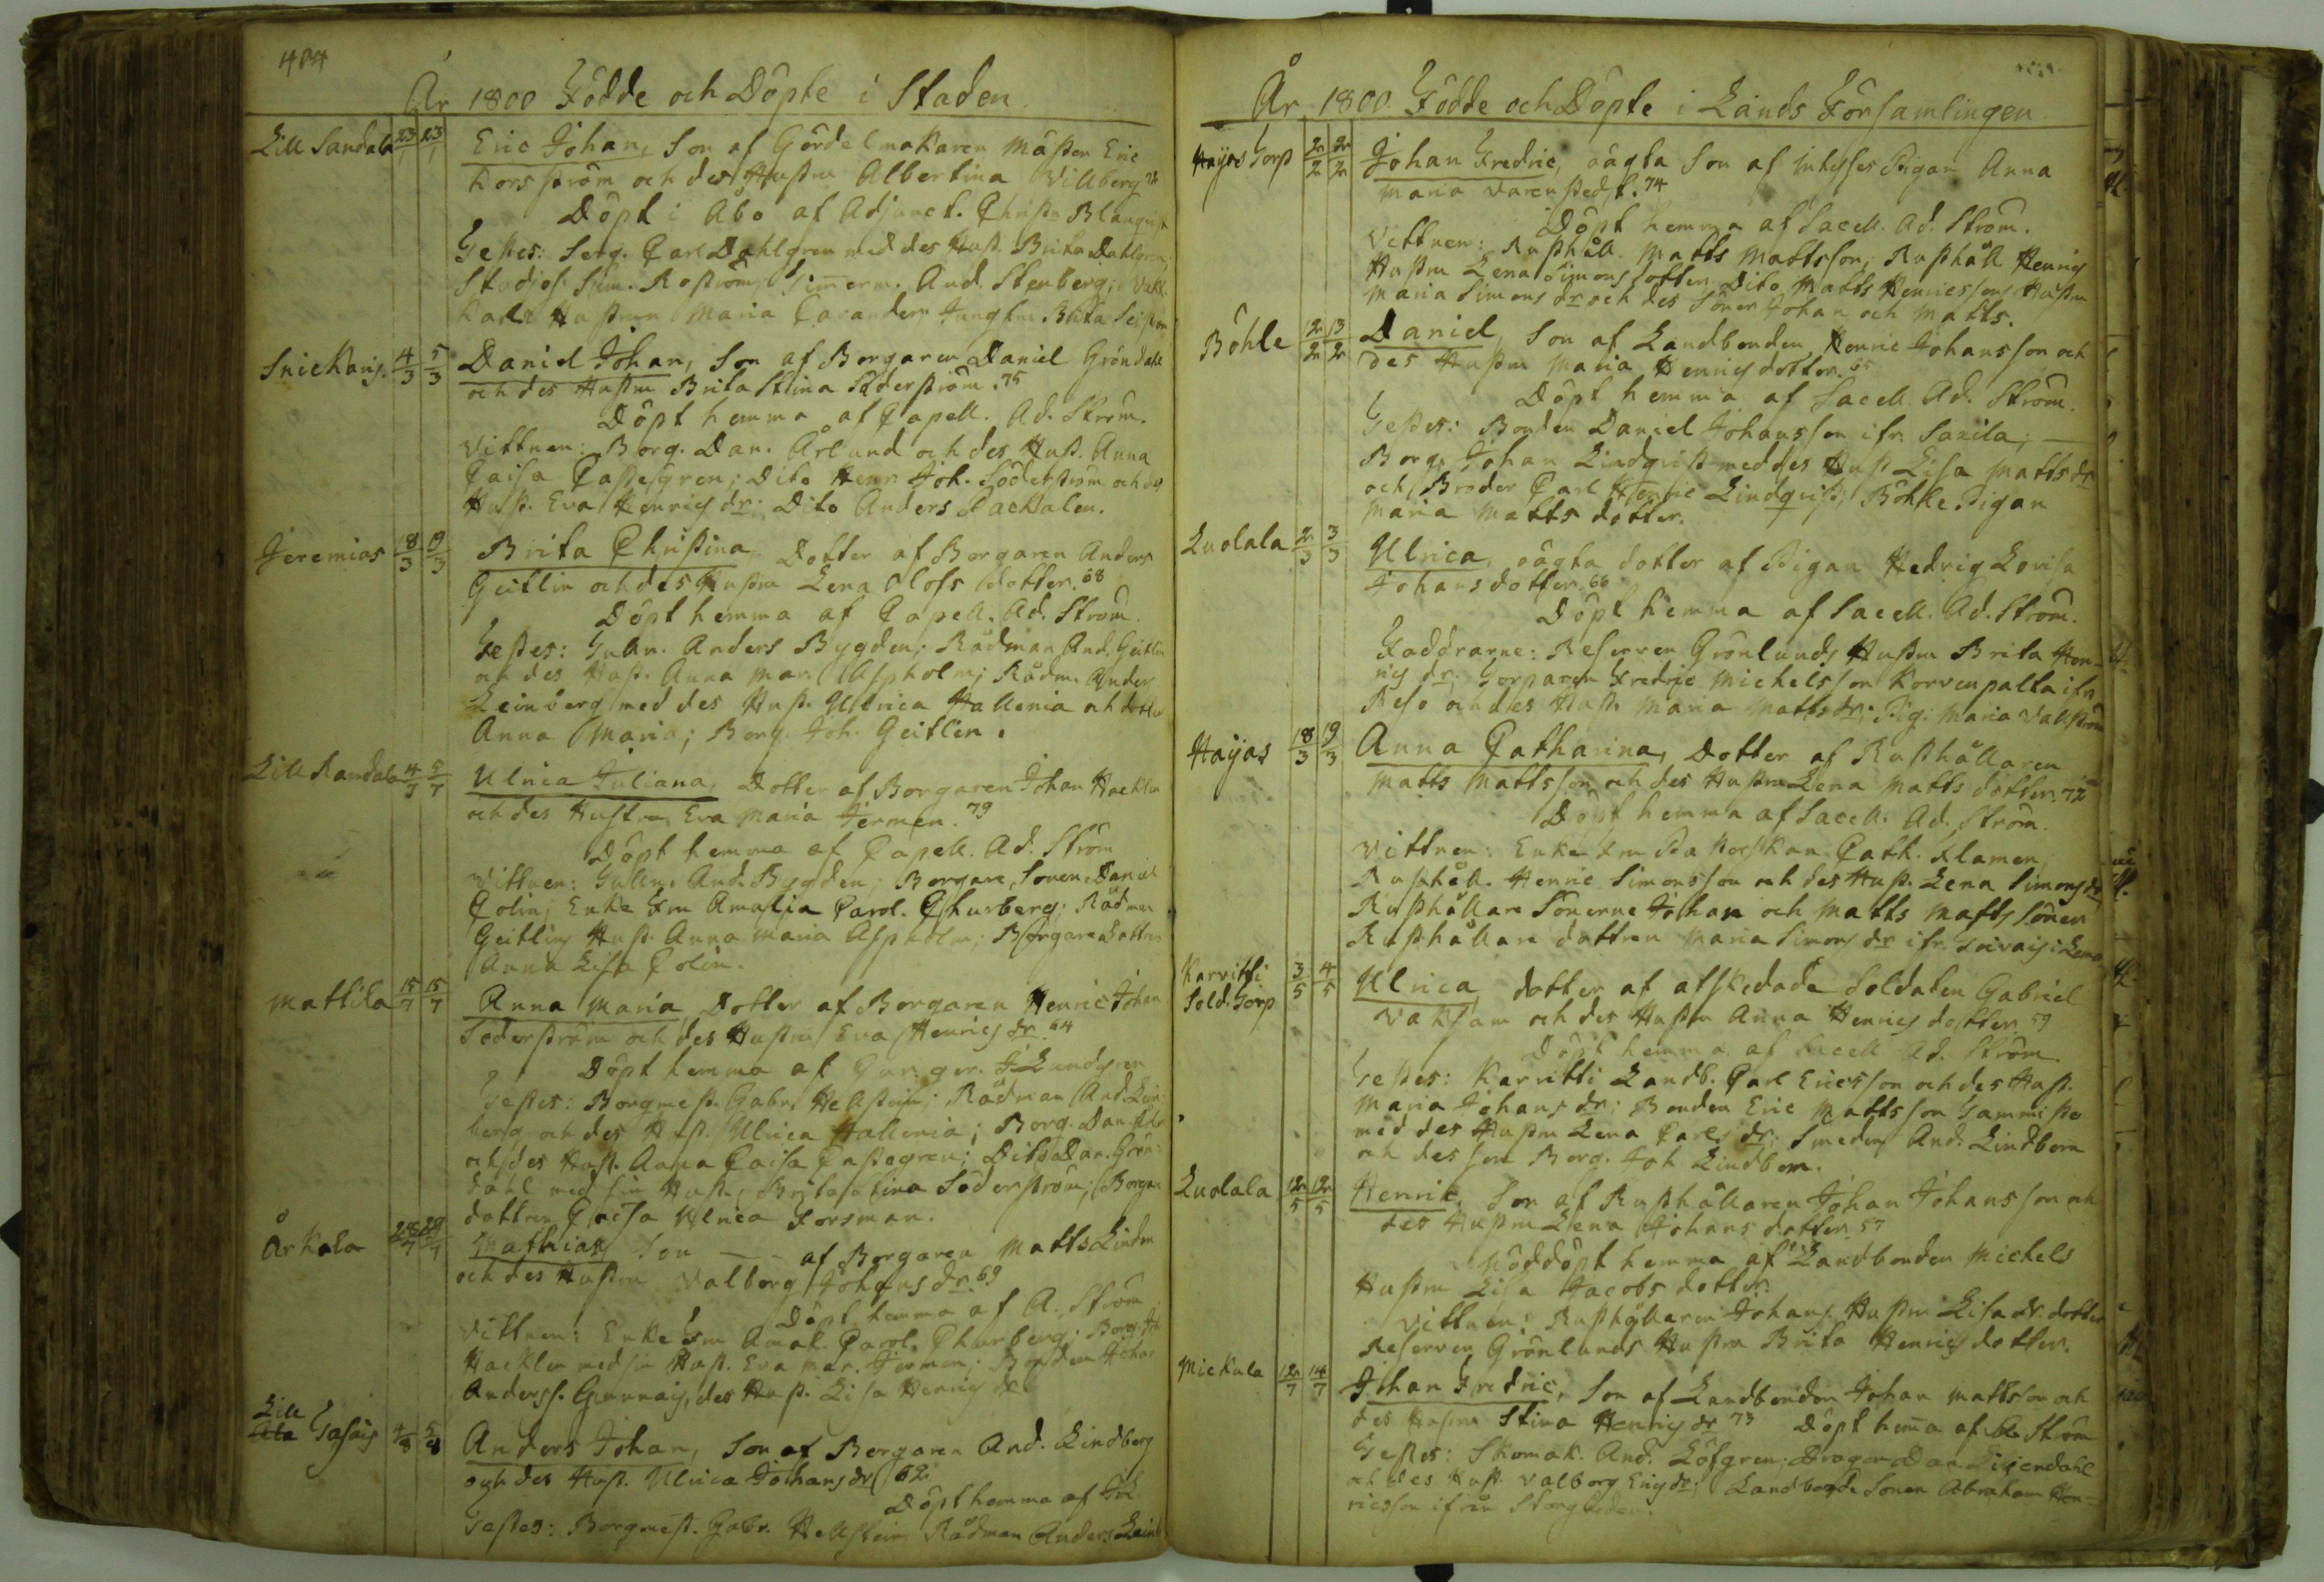 484
År 1800 Födde och Döpte i Staden.
Lill Sandala 23/1 23/1 Eric Johan, Son af Gördelmakaren Mäster Eric
Korsström och des Hustru Albertina Willberg
Döpt i Åbo af Adjunct. Christn Blanquist
Testes: Serg. Carl Dahlgren med des Hust. Brita Dahlgren,
Studios. Sim. Roström, Timerm. And. Stenberg,
Karls Hustrun Maria Carander Jungfru Brita
Snickars. 4/3 5/3 Daniel Johan, Son af Borgaren Daniel Gröndahl
och des Hustru Brita Stina Söderström. 75
Döpt hemma af Capell. Ad. Ström.
Vittnen: Borg. Dan. Arlund och des Hust. Anna
Caisa Castegren; Dito Henr. Joh. Söderström och des
Hust. Eva Henrics dr; Dito Anders Packalen.
Jeremias 18/3 19/3 Brita Christina Dotter af Borgaren Anders
Geitlin och des Hustru Lena Olofs dotter. 68
Döpt hemma af Capell. Ad. Ström.
Testes: Gulln. Anders Bygden; Rådman And. Geitlin
och des Hust. Anna Mar. Aspholm; Rådm. Anders
Leinberg med des Hust. Ulrica Hallenia och dotter
Anna Maria; Borg. Joh. Geitlin.
Lill Randala 4/7 5/7 Ulrica Juliana, Dotter af Borgaren Johan Hacklin
och des Hustru Eva Maria Jermen. 79
Döpt hemma af Capell. Ad. Ström
Vittnen: Gulln. And. Bygden; Borgare Sonen Daniel
Colin; Enke Fru Amalia Carol. Churberg; Rådman
Geitlins Hust. Anna Maria Aspholm; Borgare Dottren
Anna Lisa Colin.
Mattila 15/7 15/7 Anna Maria Dotter af Borgaren Henric Johan
Söderström och des Hustru Eva Henrics dr. 64
Döpt hemma af J. Lundgren
Testes: Borgmest. Gabr. Hellstein; Rådman And. Lein-
berg och des Hust. Ulrica Hallenia; Borg. Dan. Arl
och des Hust. Anna Caisa Castegren; Dito Dan. Grön-
dahl med sin Hust. Brita Stina Söderström; Borgare
dottren Caisa Ulrica Forsman.
Arkala 28/7 29/7 Mathias Son — af Borgaren Matts Lindin
och des Hustru Valborg Johans dr. 69
Döpt hemma af A. Ström
Vittnen: Enke Fru Amal. Carol. Churberg; Borg. Joh
Hacklin med sin Hust. Eva Mar. Jermen; Bonden Johan
Anderss. Gunnais, des Hust. Lisa Henrics dr
Lill
Tasais 4/8 5/8 Anders Johan, Son af Borgaren And. Lindberg
och des Hust. Ulrica Johans dr 62.
Döpt hemma af
Testes: Borgmest. Gabr. Hellstein, Rådman Anders Lein
År 1800 Födde och Döpte i Lands Församlingen.
Hayas Torp 2/2 2/2 Johan Fredric, oägta Son af Inhyses Pigan Anna
Maria Varenstedt. 74
Döpt hemma af Sacell. Ad. Ström.
Vittnen: Rusthåll. Matts Mattsson; Rusthåll. Henrics
Hustru Lena Simons dotter. Dito Matts Henricssons Hustru
Maria Simons dr och des Söner Johan och Matts.
Böhle 12/2 13/2 Daniel, Son af Landbonden Henric Johansson och
des Hustru Maria Henrics dotter. 65
Döpt hemma af Sacell. Ad. Ström.
Testes: Bonden Daniel Johansson ifr. Saxila; —
Borg. Johan Lindqvist med des Hust. Lisa Matts dr
och Broder Carl Henric Lindqvist, Böhle Pigan
Maria Matts dotter.
Luolala 2/3 3/3 Ulrica, oägta dotter af Pigan Hedvig Lovisa
Johansdotter. 66
Döpt hemma af Sacell. Ad. Ström.
Faddrarne: Reserven Grönlunds Hustru Brita Hen-
rics dr; Torparen Fredric Michelsson Korvenpalta ifr.
Reso och des Hust. Maria Matts dr; Pig. Maria Vallström
Hayas 18/3 19/3 Anna Catharina, Dotter af Rusthållaren
Matts Mattsson och des Hustru Lena Matts dotter. 72
Döpt hemma af Sacell. Ad. Ström.
Vittnen: Enke Fru Pastorskan Cath. Flamen;
Rusthåll. Henric Simonsson och des Hust. Lena Simons dr
Rusthållare Sönerne Johan och Matts Matts Söner
Rusthållare dottren Maria Simons dr ifr.
Karvitti
Sold. Torp 3/5 4/5 Ulrica dotter af afskedade Soldaten Gabriel
Vaksam och des Hustru Anna Henrics dotter. 59
Döpt hemma af Sacell. Ad. Ström.
Testes: Karvitti Landb. Carl Ericsson och des Hust.
Maria Johans dr; Bonden Eric Mattsson Tammisto
med des Hustru Lena Carls dr; Smeden And. Lindbom
och des son Borg. Joh. Lindbom.
Luolala 12/5 12/5 Henric, Son af Rusthållaren Johan Johansson och
des Hustru Lena Johans dotter 57
Nöddöpt hemma af Landbonden Michels
Hustru Lisa Jacobs dotter.
Vittnen: Rusthållaren Johans Hustru Lisa dotter
Reserven Grönlunds Hustru Brita Henrics dotter.
Mickula 12/7 14/7 Johan Fredric, Son af Landbonden Johan Mattsson och
des Hustru Stina Henrics dr 73 Döpt hemma af Ström
Testes: Skomak. And. Löfgren; Dragon Dan. Liljendahl
och des Hust. Valborg Erics dr; Landbonde Sonen Abraham Hen-
ricsson ifrån Storgården.